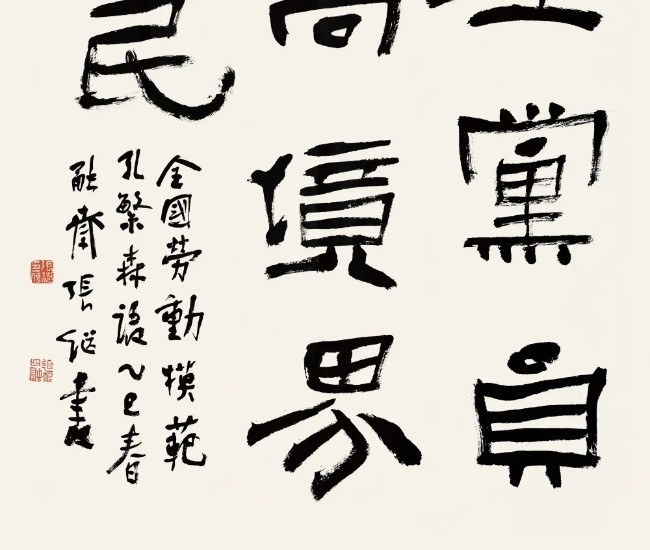 黨員
高境界
民
全國勞動模範
孔繁森語乙巳春
融齋張继書